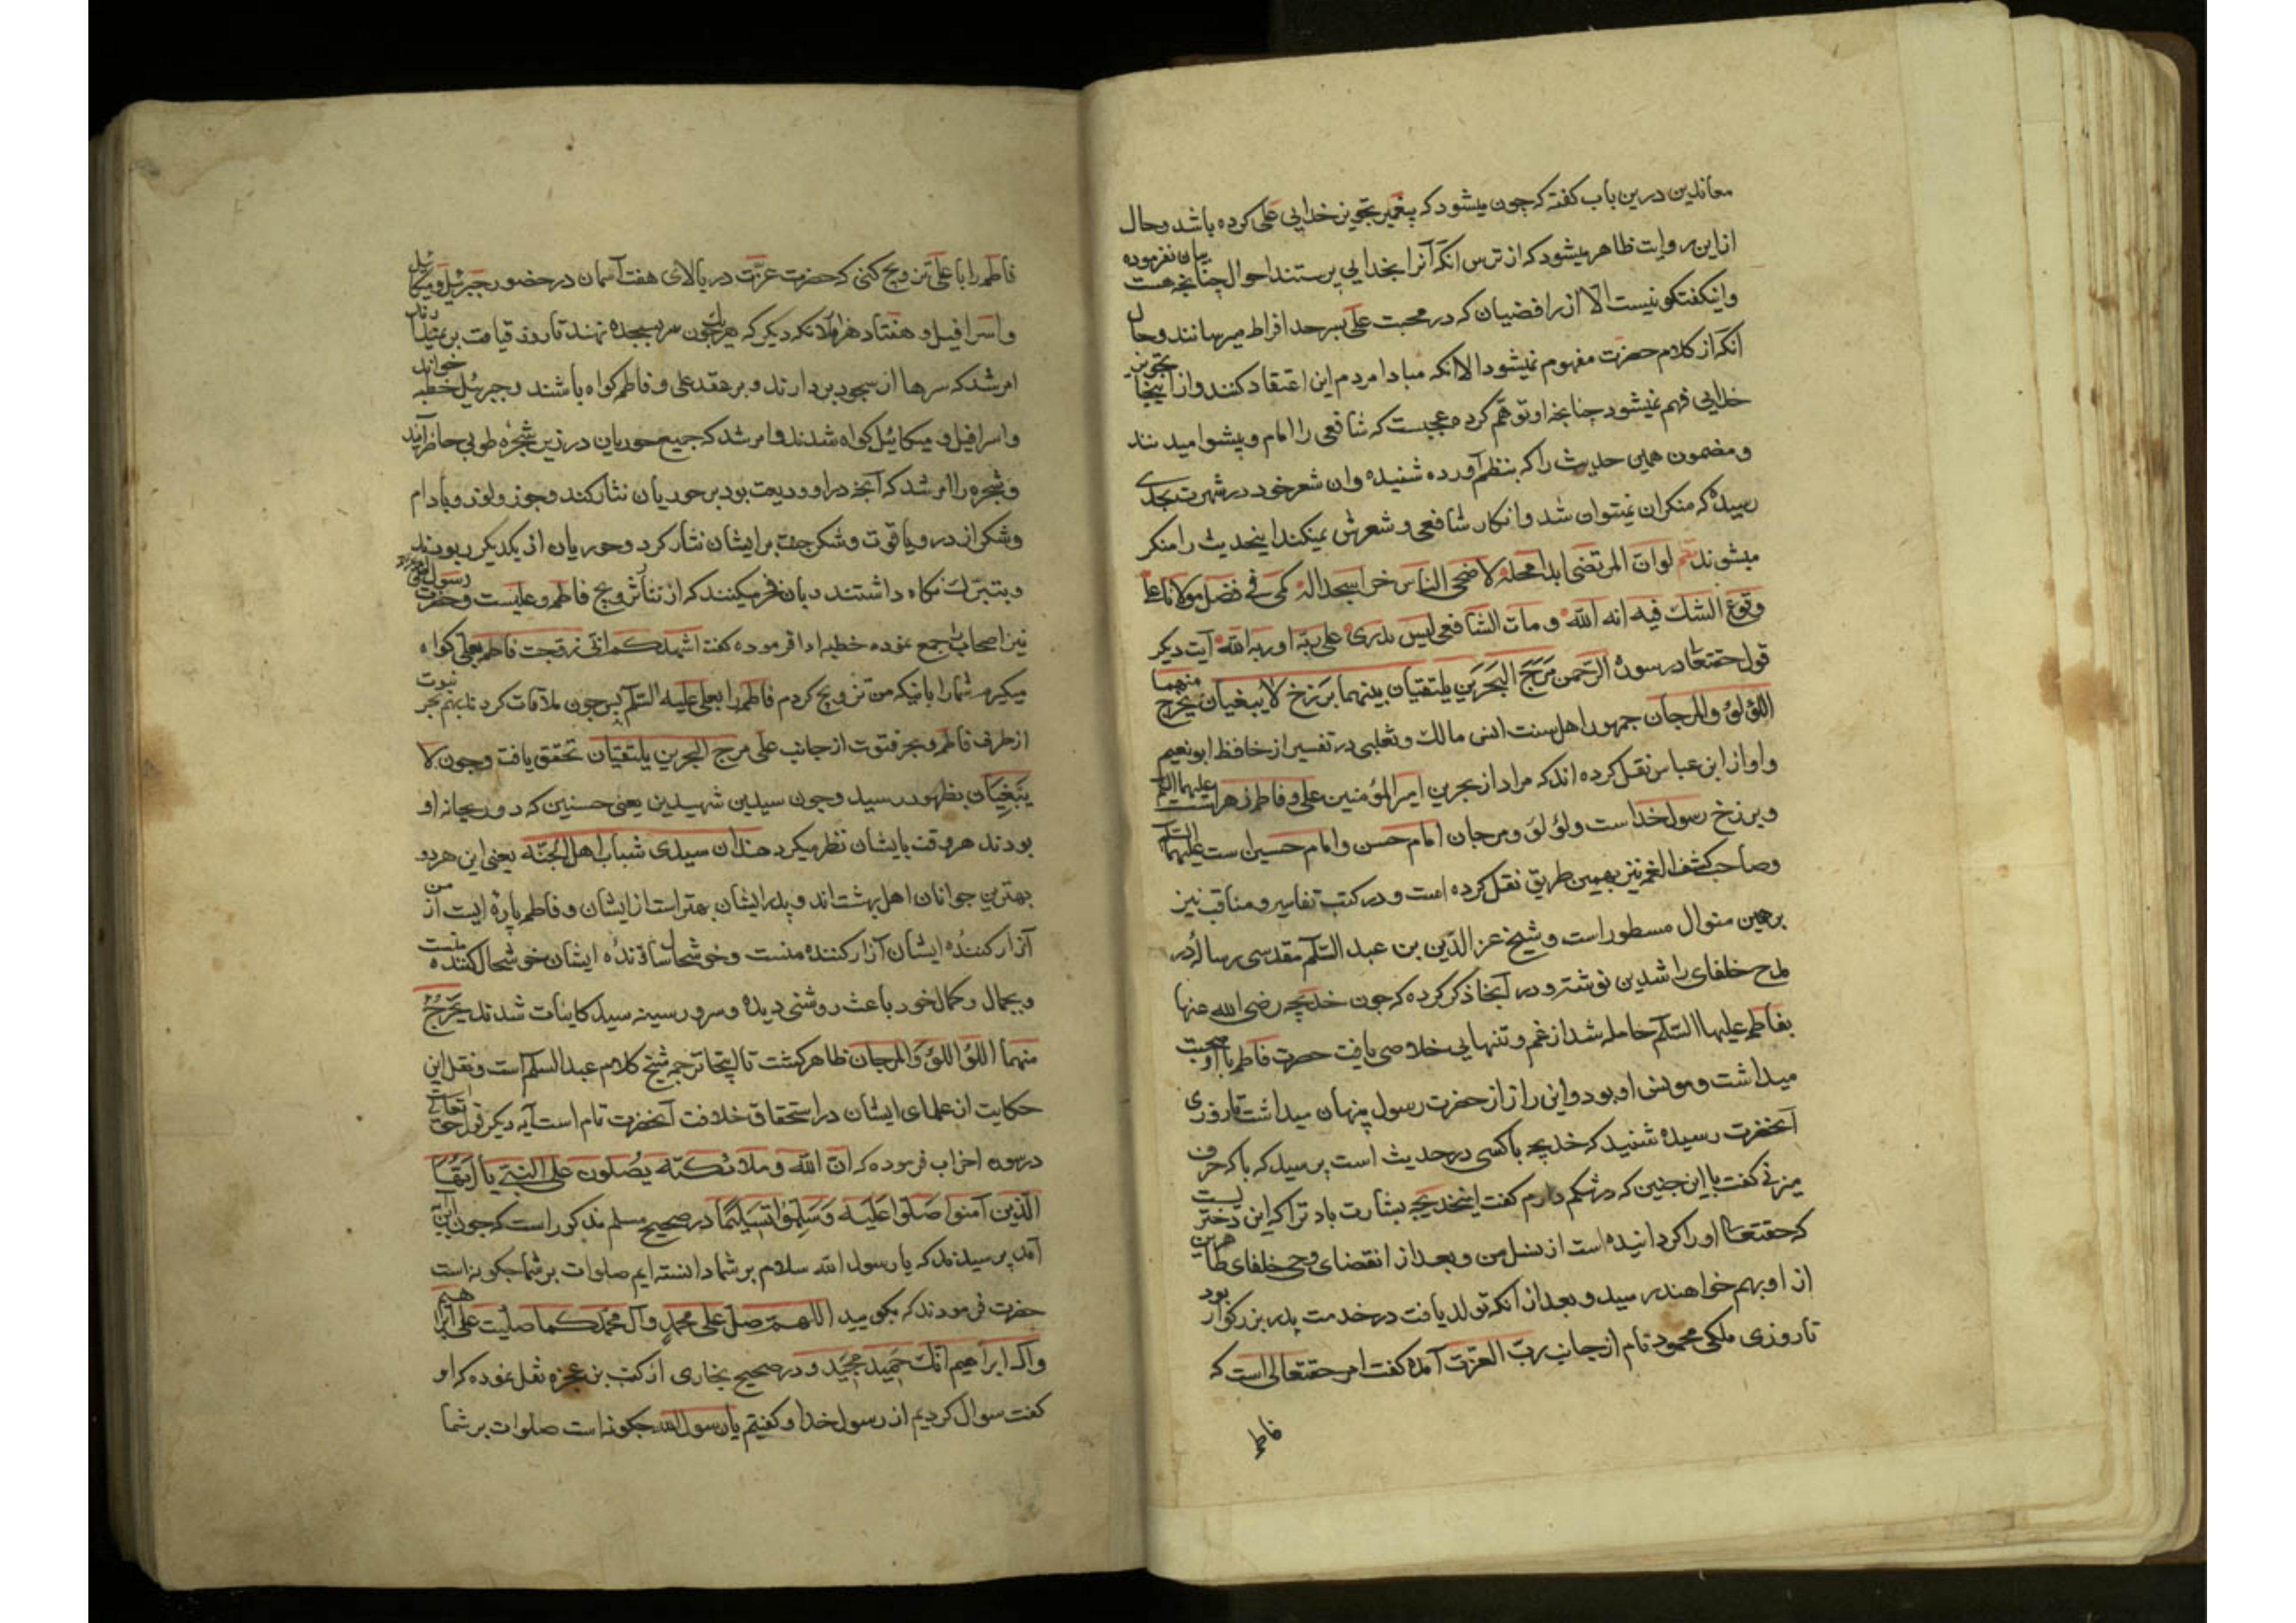 معاندین درین باب کفته که چون میشود که پیغمبر تجویز خدایی علی کرده باشد و حال
ازاین روایت ظاهر میشود که از ترس انکه آنرا بخدایی پرستند احوال چنانچه هست بیان نفرموده
واینکفتکو نیست الا از رافضیان که در محبت علی بسرحد افراط میرسانند و حال
انکه از کلام حضرت مفهوم نمیشود الا انکه مبادا مردم این اعتقاد کنند و از اینجا تجویز
خدایی فهم نمیشود چنانچه او توهم کرده عجبست که شافعی را امام و پیشوا میدانند
و مضمون همین حدیث را که بنظم آورده شنیده وان شعر خود در شهرت بجای
رسیده که منکر ان نمیتوان شد و انکار شافعی و شعرش نمیکند اینحدیث را منکر
میشوند لو ان المرتضی ابدا محله لاضحی الناس خرا سجدا له کفی فی فضل مولانا علی
وقوع الشک فیه انه الله و مات الشافعی لیس یدری علی ربه او ربه الله آیت دیکر
قول حقتعا در سورة الرحمن مرج البحرین یلتقیان بینهما برزخ لا یبغیان یخرج منهما
اللؤلؤ والمرجان جمهور اهل سنت انس مالک و ثعلبی در تفسیر از حافظ ابو نعیم
واو از ابن عباس نقل کرده اند که مراد از بحرین امیر المؤمنین علی و فاطمه زهراست علیهما السلم
و برزخ رسول خداست و لؤلؤ و مرجان امام حسن و امام حسین است علیهما السلم
و صاحب کشف الغمه نیز بهمین طریق نقل کرده است و در کتب تفاسیر و مناقب نیز
برهمین منوال مسطور است و شیخ عز الدین بن عبد السلم مقدسی رساله در
مدح خلفای راشدین نوشته و در آنجا ذکر کرده که چون خدیجه رضی الله عنها
بفاطمه علیها السلم حامله شد از غم و تنهایی خلاصی یافت حضرت فاطمه با او صحبت
میداشت و مونس او بود و این راز از حضرت رسول پنهان میداشت تا روزی
آنحضرت رسیده شنید که خدیجه با کسی در حدیث است پرسید که با که حرف
میزنی کفت با این جنین که در شکم دارم کفت ایخدیجه بشارت باد ترا که این دختریست
که حقتعالی او را کردانیده است از نسل من و بعد از انقضای وحی خلفای طاهرین
از او بهم خواهند رسید و بعد از انکه تولد یافت در خدمت پدر بزرکوار بود
تا روزی ملکی محمود نام از جانب رب العزت آمده کفت امر حقتعالی است که
فاطمه
فاطمه را با علی تزویج کنی که حضرت عزت در بالای هفت آسمان در حضور جبرئیل و میکائیل
و اسرافیل و هفتاد هزار ملائکه دیکر که هر یک چون سر بسجده نهند تا روز قیامت بر نمیدارند
امر شد که سرها از سجود بردارند و بر عقد علی و فاطمه کواه باشند و جبرئیل خطبه خواند
و اسرافیل و میکائیل کواه شدند و امر شد که جمیع حوریان در زیر شجره طوبی حاضر آیند
و شجره را امر شد که آنچه در او ودیعت بود بر حوریان نثار کند و جوز و لوز و بادام
و شکر از در و یاقوت و شکر جنت بر ایشان نثار کرد و حوریان از یکدیکر ربودند
و بتبرک نکاه داشتند و بان فخر میکنند که از نثار تزویج فاطمه و علیست و حضرت رسول
نیز اصحاب را جمع نموده خطبه ادا فرموده کفت اشهدکم انی زوجت فاطمه بعلی کواه
میکیرم شما را باینکه من تزویج کردم فاطمه را بعلی علیه السلم پس چون ملاقات کرد بهم بحر نبوت
ازطرف فاطمه و بحر فتوت از جانب علی مرج البحرین یلتقیان تحقق یافت و چون لا
یبغیان بظهور رسید و چون سیدین شهیدین یعنی حسنین که دو ریحانه او
بودند هر وقت بایشان نظر میکرد هذان سیدی شباب اهل الجنه یعنی این هردو
بهترین جوانان اهل بهشت اند و پدر ایشان بهتر است از ایشان و فاطمه پاره ایست از من
آزار کننده ایشان آزار کننده منست و خوشحال سازنده ایشان خوشحال کننده منست
و بجمال و کمال خود باعث روشنی دیده و سرور سینه سید کاینات شدند یخرج
منهما اللؤ اللؤلؤ والمرجان ظاهر کشت تا اینجا ترجمه شیخ کلام عبد السلم است و نقل این
حکایت از علمای ایشان در استحقاق خلافت آنحضرت تام است آیه دیکر قول حق تعالی
درسوره احزاب فرموده که ان الله و ملائکته یصلون علی النبی یا ایها
الذین آمنوا صلوا علیه وسلموا تسلیما در صحیح مسلم مذکور است که چون این آیه
آمد پرسیدند که یا رسول الله سلام بر شما دانسته ایم صلوات بر شما چکونه است
حضرت فرمودند که بکویید اللهم صل علی محمد و آل محمد کما صلیت علی ابراهیم
و آل ابراهیم انک حمید مجید و در صحیح بخاری از کعب بن عجزه نقل نموده که او
کفت سوال کردیم از رسول خدا و کفتیم یا رسول الله چکونه است صلوات بر شما